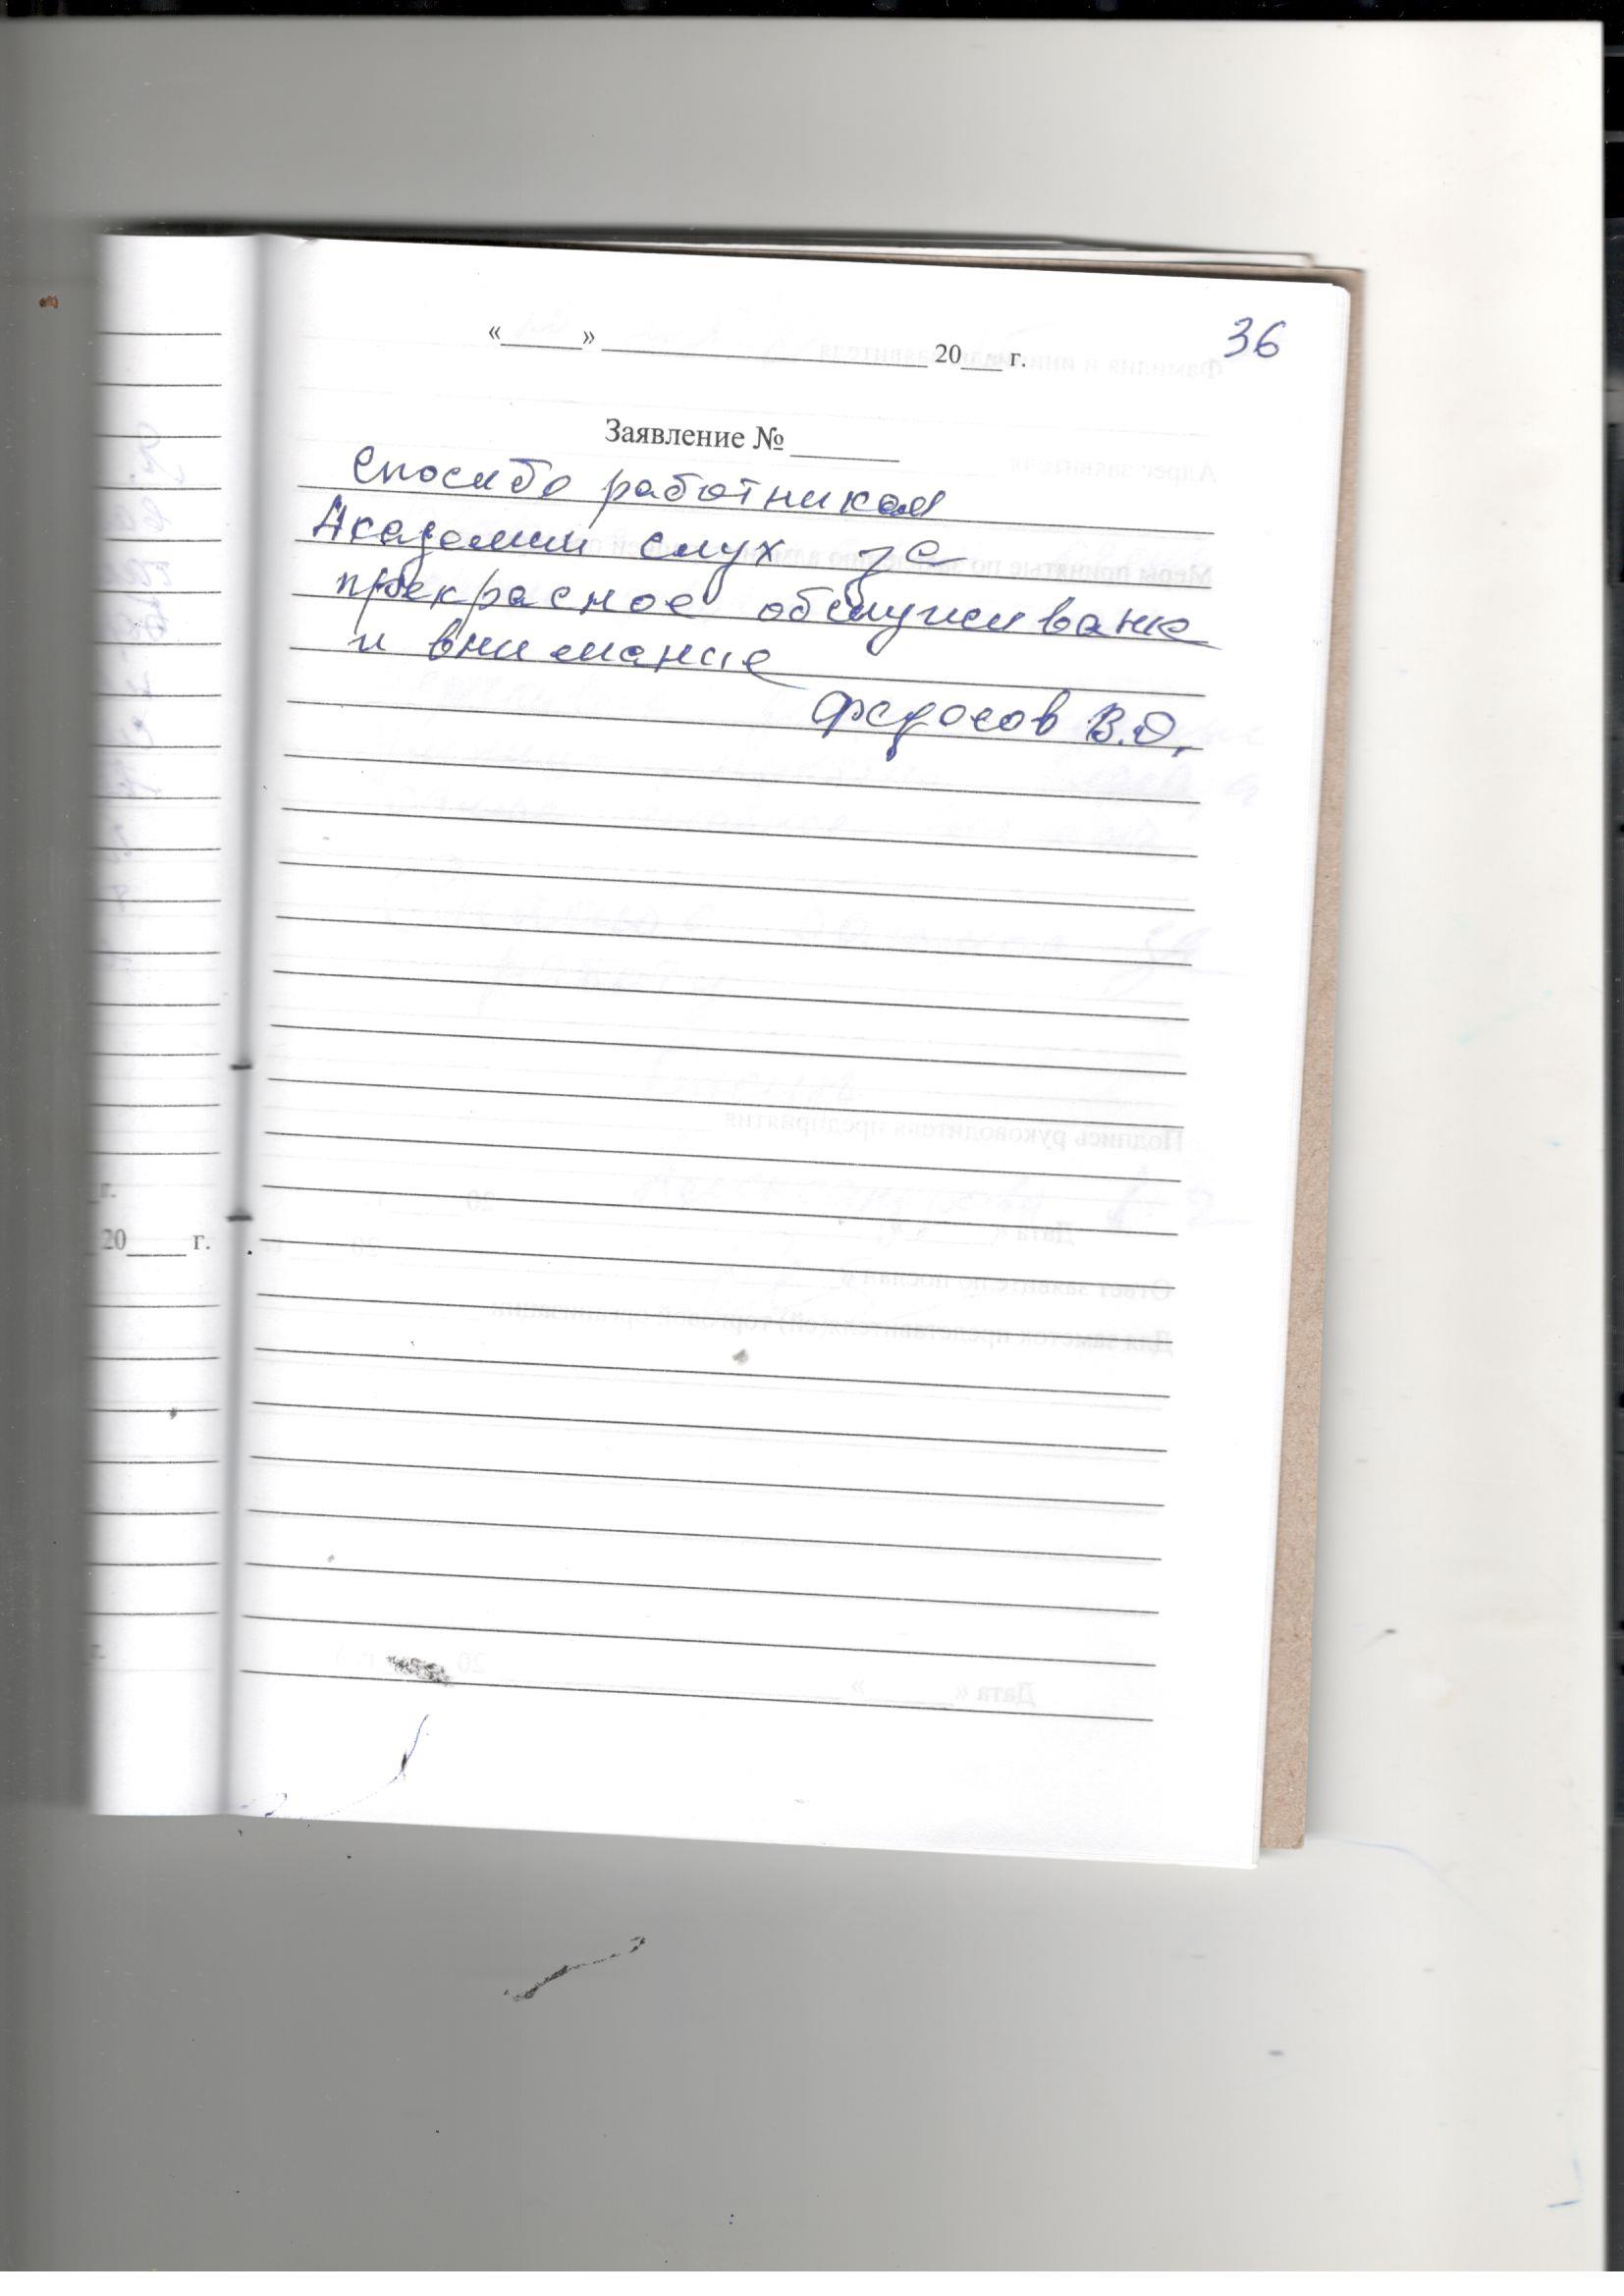 36
«______» ______________________ 20___ г.
Заявление № _______
Спосибо работникам
Академии слух за
прекрасное обслуживане
и внимание
Федосов В.О.
г.
20____ г.
г.